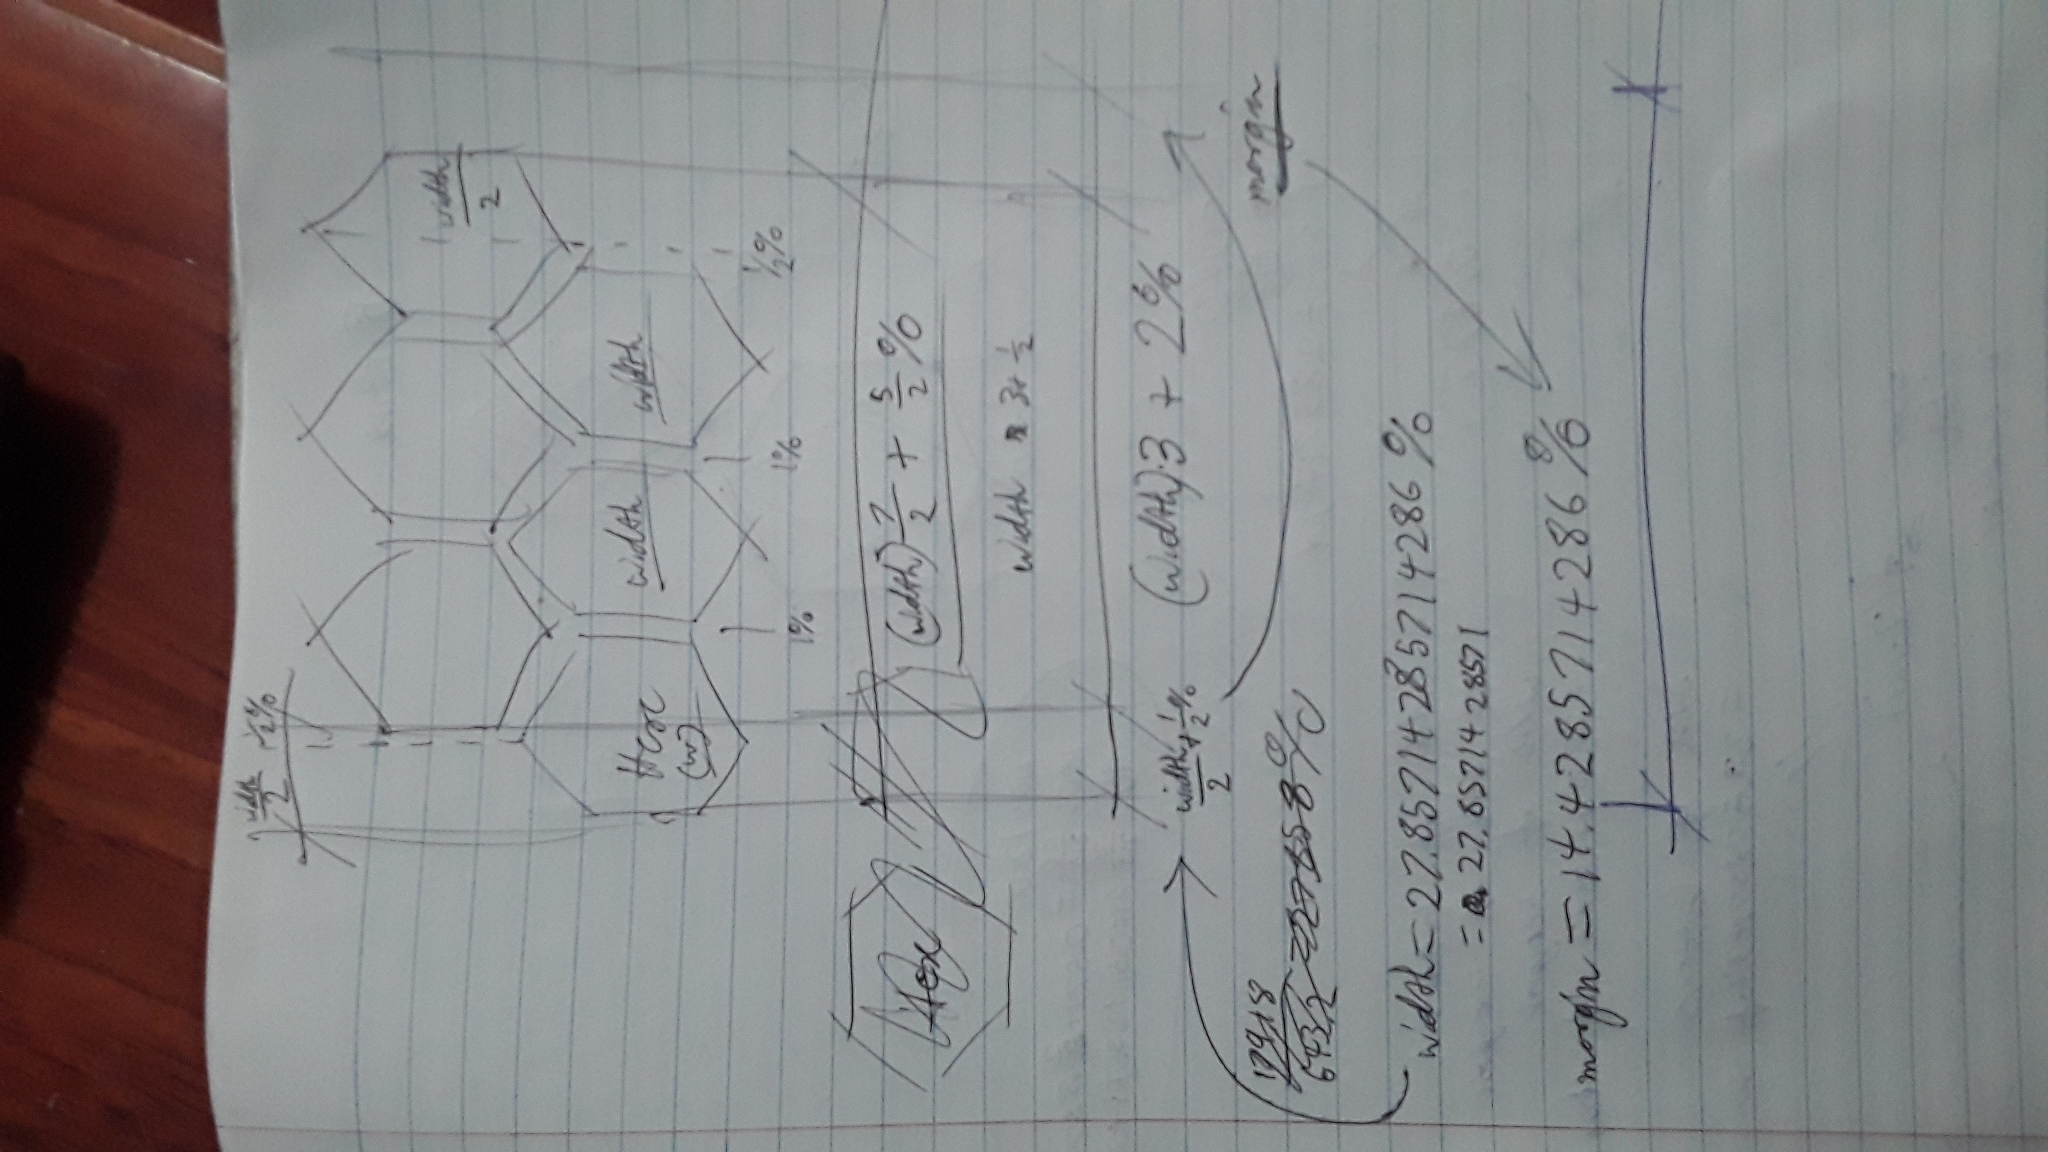 width/2 1/2%
width/2
Hexe (w) width width
1% 1% 1/2%
Hex
(width) 7/2 + 5/2 %
width 3+ 1/2
width/2 + 1/2 % (width)·3 + 2%
margin
width = 27.85714285714286 %
= 27.8571428571
margin = 14.4285714286 %